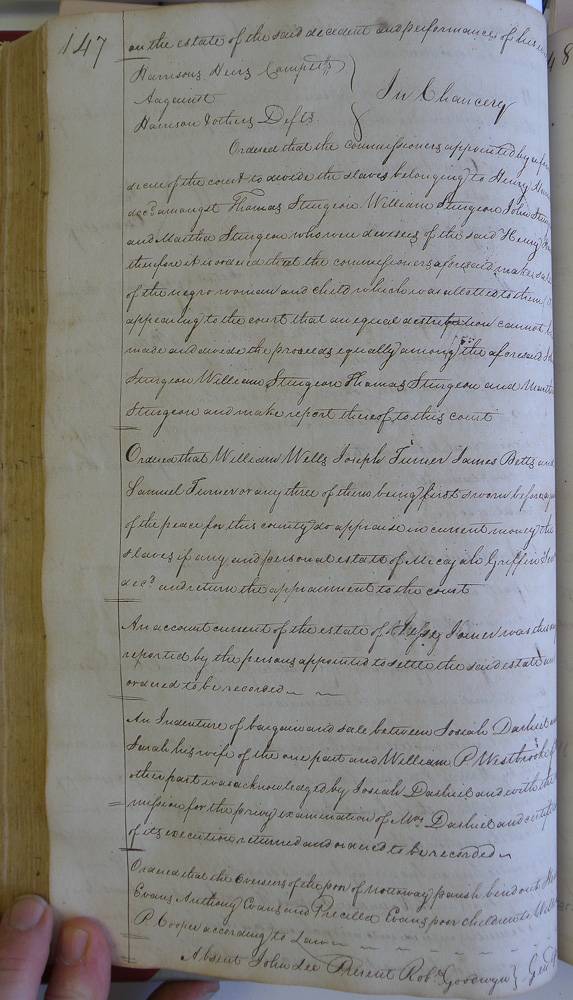 147
on the estate of the said decedent and performances of his
Harrisons Heirs Complts
Aagainst
Harrison & others Defts
In Chancery
Ordered that the commissioners appointed by a
decree of the court to divide the slaves belonging to Henry
decd amongst Thomas Sturgeon William Sturgeon John
and Martha Sturgeon who were devisees of the said Henry
therefore it is ordered that the commissioners aforesaid make sale
of the negro woman and child which was allotted to them
appearing to the court that an equal distribution cannot be
made and divide the proceeds equally among the aforesaid
Sturgeon William Sturgeon Thomas Sturgeon and Martha
Sturgeon and make report thereof to this court
Ordered that William Wells Joseph Turner James Betts and
Samuel Turner or any three of them being first sworn before
of the peace for this county do appraise in current money the
slaves if any and personal estate of Micajah Griffin
decd and return the appraisment to the court
An account current of the estate of Jesse Joiner was this
reported by the persons appointed to settle the said estate and
ordered to be recorded
An Indenture of bargain and sale between Josiah Dashiel and
Sarah his wife of the one part and William P Westbrook of
other part was acknowledged by Josiah Dashiel and with the
mission for the privy examination of Mrs Dashiel and certificate
of its execution returned and ordered to be recorded
Ordered that the Overseers of the poor of Nottoway parish bend out
Evans Anthony Evans and Precilla Evans poor children to
P. Cooper according to Law
Absent John Lee Present Robt Goodwyn Gent